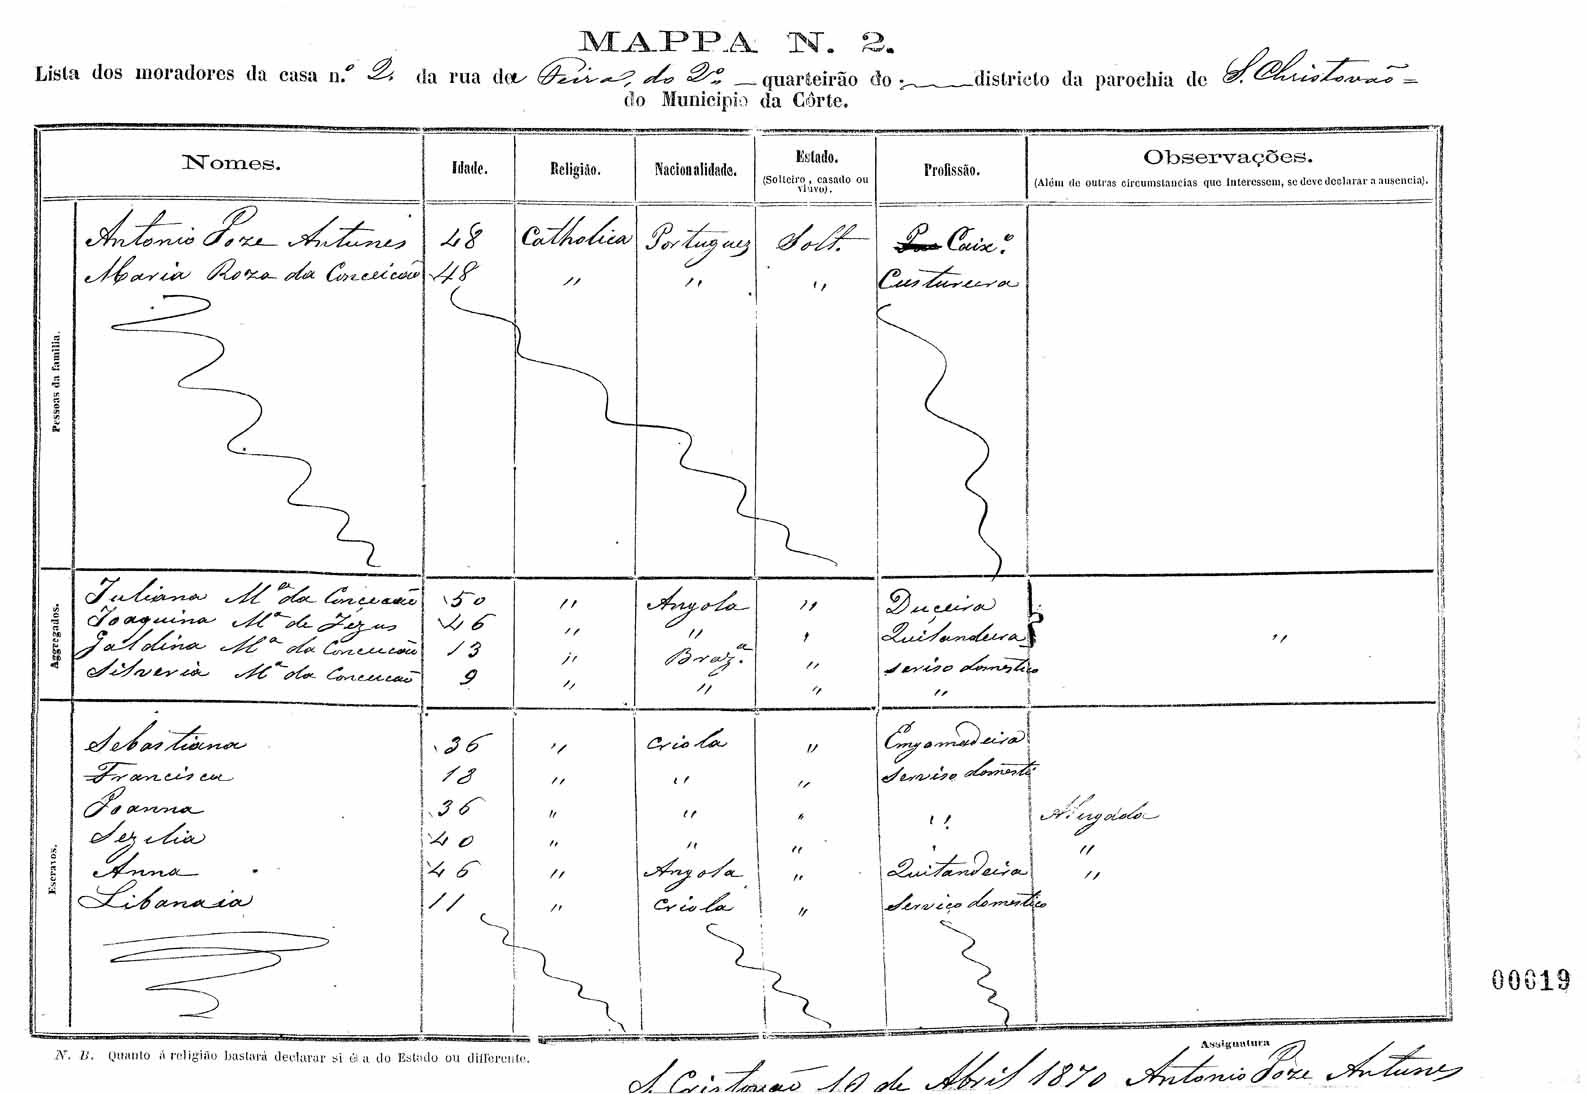 MAPPA N. 2.
Lista dos moradores da casa n.º 2, da rua da Feira, do 2º quarteirão do districto da parochia de S. Christovão
do Municipio da Côrte.
Nomes. Idade. Religião. Nacionalidade. Estado. (Solteiro, casado ou viuvo). Profissão. Observações. (Além de outras circumstancias que interessem, se deve declarar a ausencia).
Pessoas da familia.
Antonio Joze Antunes 48 Catholica Portuguez Solt. Caixº.
Maria Roza da Conceicão 48 " " " Custureira
Aggregados.
Juliana Mª da Conceicão 50 " Angola " Duceira
Joaquina Mª de Jezus 46 " " " Quitandeira "
Galdina Mª da Conceicão 13 " Brazª. " serviso domestico
Silveria Mª da Conceicão 9 " " " "
Escravos.
Sebastiana 36 " criola " Engomadeira
Francisca 18 " " " serviso domesti
Joanna 36 " " " "
Sezilia 40 " " " " "
Anna 46 " Angola " Quitandeira "
Libanaia 11 " criola " Serviço domestico
00019
N. B. Quanto á religião bastará declarar si é a do Estado ou differente.
Assignatura
S. Cristovão 10 de Abril 1870 Antonio Joze Antunes